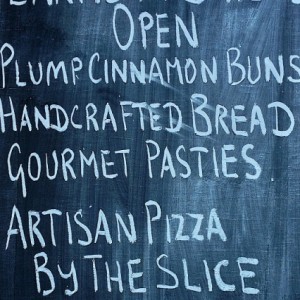 OPEN
PLUMP CINNAMON BUNS
HANDCRAFTED BREAD
GOURMET PASTIES.
ARTISAN PIZZA
BY THE SLICE